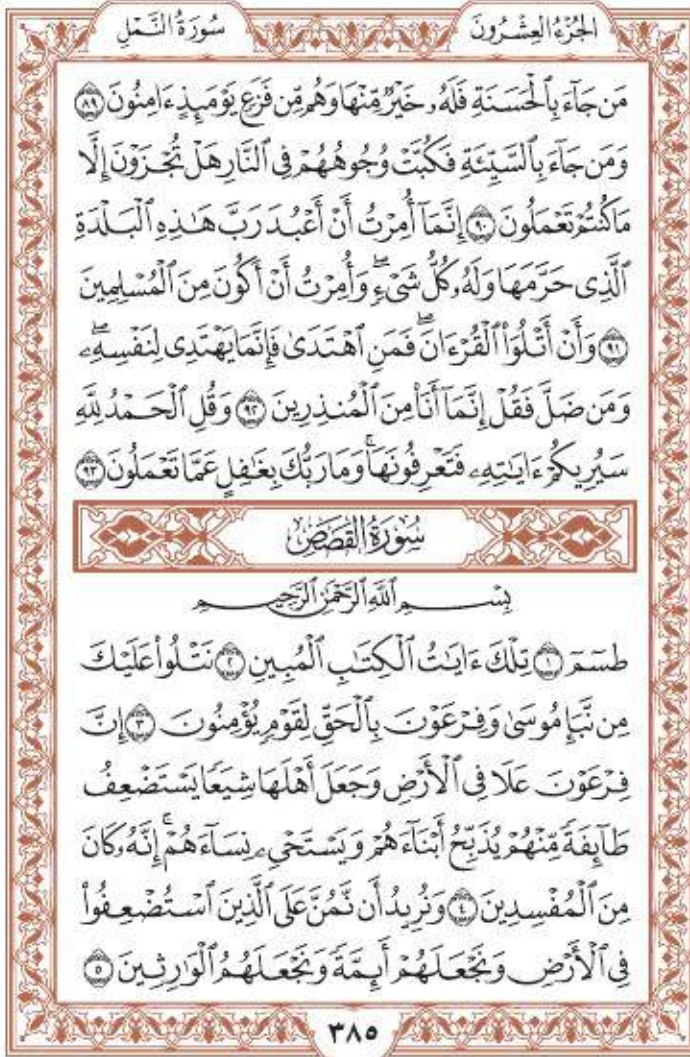 الجُزْءُ العِشْرُونَ
سُورَةُ النَّمْلِ
مَن جَآءَ بِٱلْحَسَنَةِ فَلَهُۥ خَيْرٌ مِّنْهَا وَهُم مِّن فَزَعٍ يَوْمَئِذٍ ءَامِنُونَ ٨٩
وَمَن جَآءَ بِٱلسَّيِّئَةِ فَكُبَّتْ وُجُوهُهُمْ فِى ٱلنَّارِ هَلْ تُجْزَوْنَ إِلَّا
مَا كُنتُمْ تَعْمَلُونَ ٩٠ إِنَّمَآ أُمِرْتُ أَنْ أَعْبُدَ رَبَّ هَٰذِهِ ٱلْبَلْدَةِ
ٱلَّذِى حَرَّمَهَا وَلَهُۥ كُلُّ شَىْءٍۖ وَأُمِرْتُ أَنْ أَكُونَ مِنَ ٱلْمُسْلِمِينَ
٩١ وَأَنْ أَتْلُوَا۟ ٱلْقُرْءَانَۖ فَمَنِ ٱهْتَدَىٰ فَإِنَّمَا يَهْتَدِى لِنَفْسِهِۦۖ
وَمَن ضَلَّ فَقُلْ إِنَّمَآ أَنَا۠ مِنَ ٱلْمُنذِرِينَ ٩٢ وَقُلِ ٱلْحَمْدُ لِلَّهِ
سَيُرِيكُمْ ءَايَٰتِهِۦ فَتَعْرِفُونَهَاۚ وَمَا رَبُّكَ بِغَٰفِلٍ عَمَّا تَعْمَلُونَ ٩٣
سُورَةُ القَصَصِ
بِسْمِ ٱللَّهِ ٱلرَّحْمَٰنِ ٱلرَّحِيمِ
طسٓمٓ ١ تِلْكَ ءَايَٰتُ ٱلْكِتَٰبِ ٱلْمُبِينِ ٢ نَتْلُوا۟ عَلَيْكَ
مِن نَّبَإِ مُوسَىٰ وَفِرْعَوْنَ بِٱلْحَقِّ لِقَوْمٍ يُؤْمِنُونَ ٣ إِنَّ
فِرْعَوْنَ عَلَا فِى ٱلْأَرْضِ وَجَعَلَ أَهْلَهَا شِيَعًا يَسْتَضْعِفُ
طَآئِفَةً مِّنْهُمْ يُذَبِّحُ أَبْنَآءَهُمْ وَيَسْتَحْىِۦ نِسَآءَهُمْۚ إِنَّهُۥ كَانَ
مِنَ ٱلْمُفْسِدِينَ ٤ وَنُرِيدُ أَن نَّمُنَّ عَلَى ٱلَّذِينَ ٱسْتُضْعِفُوا۟
فِى ٱلْأَرْضِ وَنَجْعَلَهُمْ أَئِمَّةً وَنَجْعَلَهُمُ ٱلْوَٰرِثِينَ ٥
٣٨٥